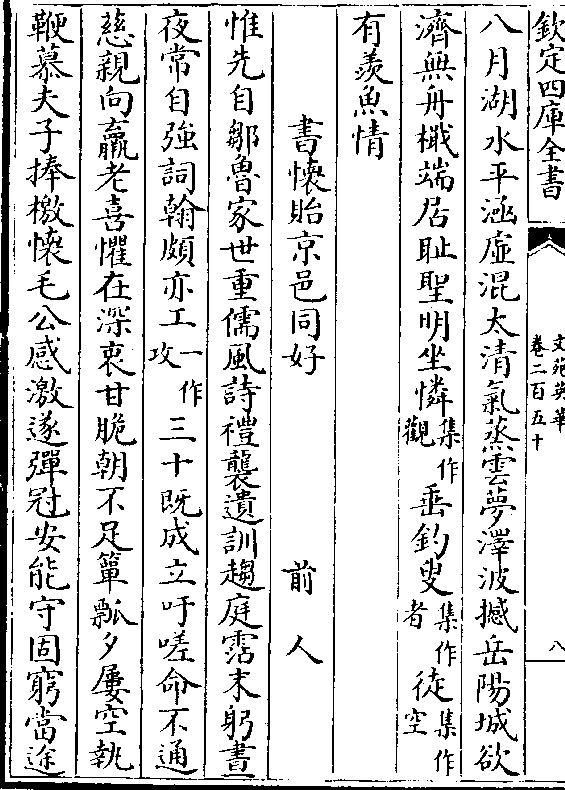 欽定四庫全書
文苑英華
卷二百五十
八
八月湖水平涵虛混太清氣蒸雲夢澤波撼岳陽城欲
濟無舟檝端居耻聖明坐憐集作觀垂釣叟集作者徒集作空
有羨魚情
書懷貽京邑同好 前人
惟先自鄒魯家世重儒風詩禮襲遺訓趨庭霑末躬晝
夜常自強詞翰頗亦工一作攻三十既成立吁嗟命不通
慈親向羸老喜懼在深衷甘脆朝不足簞瓢夕屢空執
鞭慕夫子捧檄懷毛公感激遂彈冠安能守固窮當途